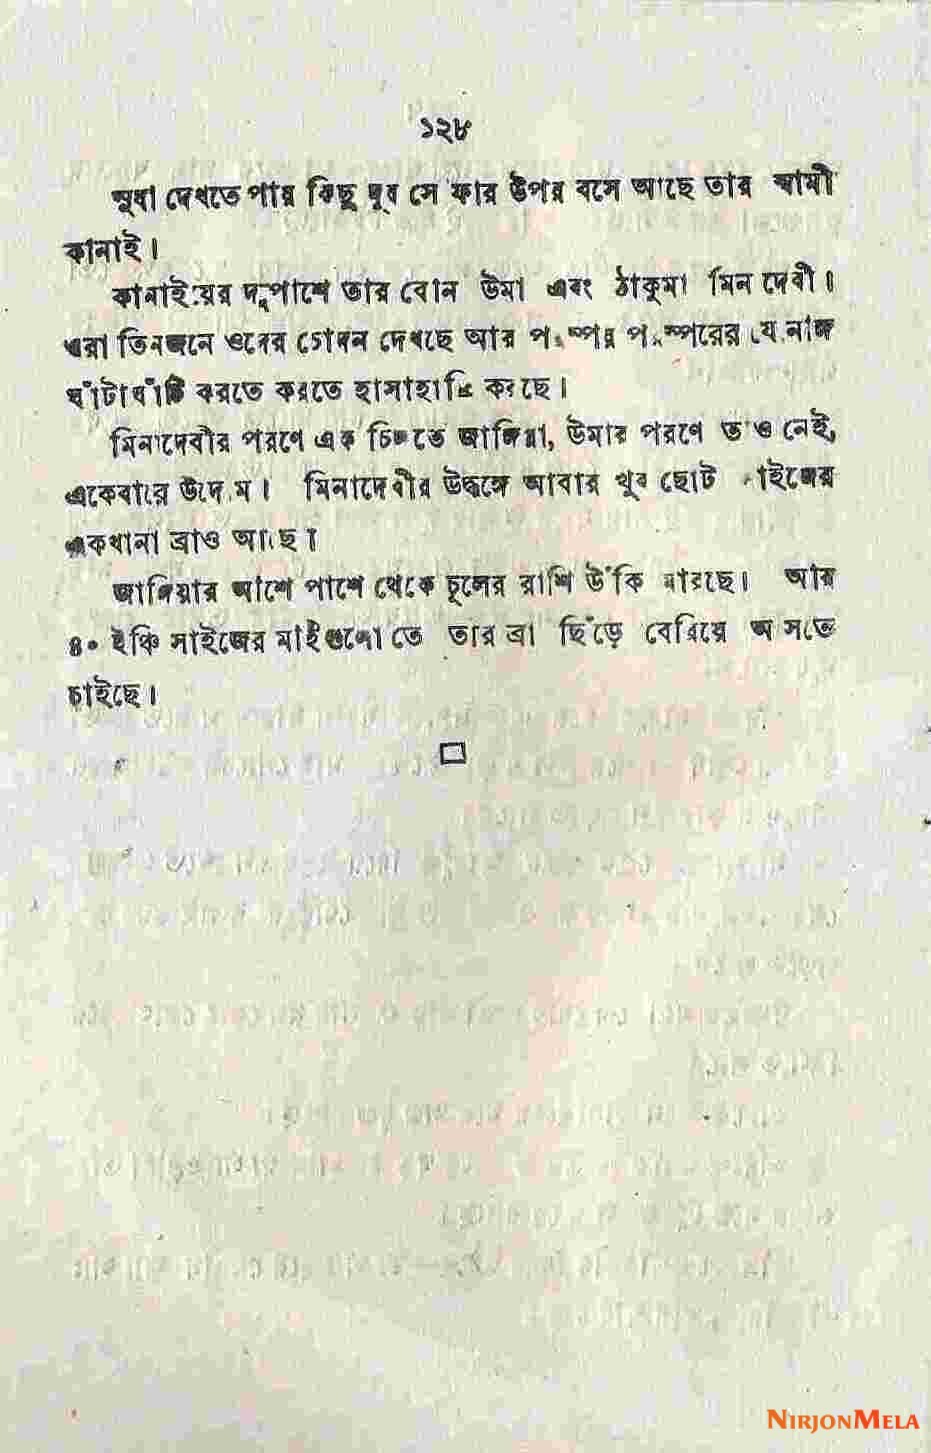 ১২৮
সুধা দেখতে পায় কিছু দূরে সোফার উপর বসে আছে তার স্বামী
কানাই।
কানাইয়ের দুপাশে তার বোন উমা এবং ঠাকুমা মিনা দেবী।
এরা তিনজনে ওদের চোদন দেখছে আর পরস্পর পরস্পরের যৌনাঙ্গ
ঘাঁটাঘাঁটি করতে করতে হাসাহাসি করছে।
মিনাদেবীর পরণে এক চিলতে জাঙ্গিয়া, উমার পরণে তাও নেই,
একেবারে উদোম। মিনাদেবীর উর্দ্ধাঙ্গে আবার খুব ছোট সাইজের
একখানা ব্রাও আছে।
জাঙ্গিয়ার আশে পাশে থেকে চুলের রাশি উঁকি মারছে। আর
৪০ ইঞ্চি সাইজের মাইগুলো তো তার ব্রা ছিঁড়ে বেরিয়ে আসতে
চাইছে।
NIRJONMELA